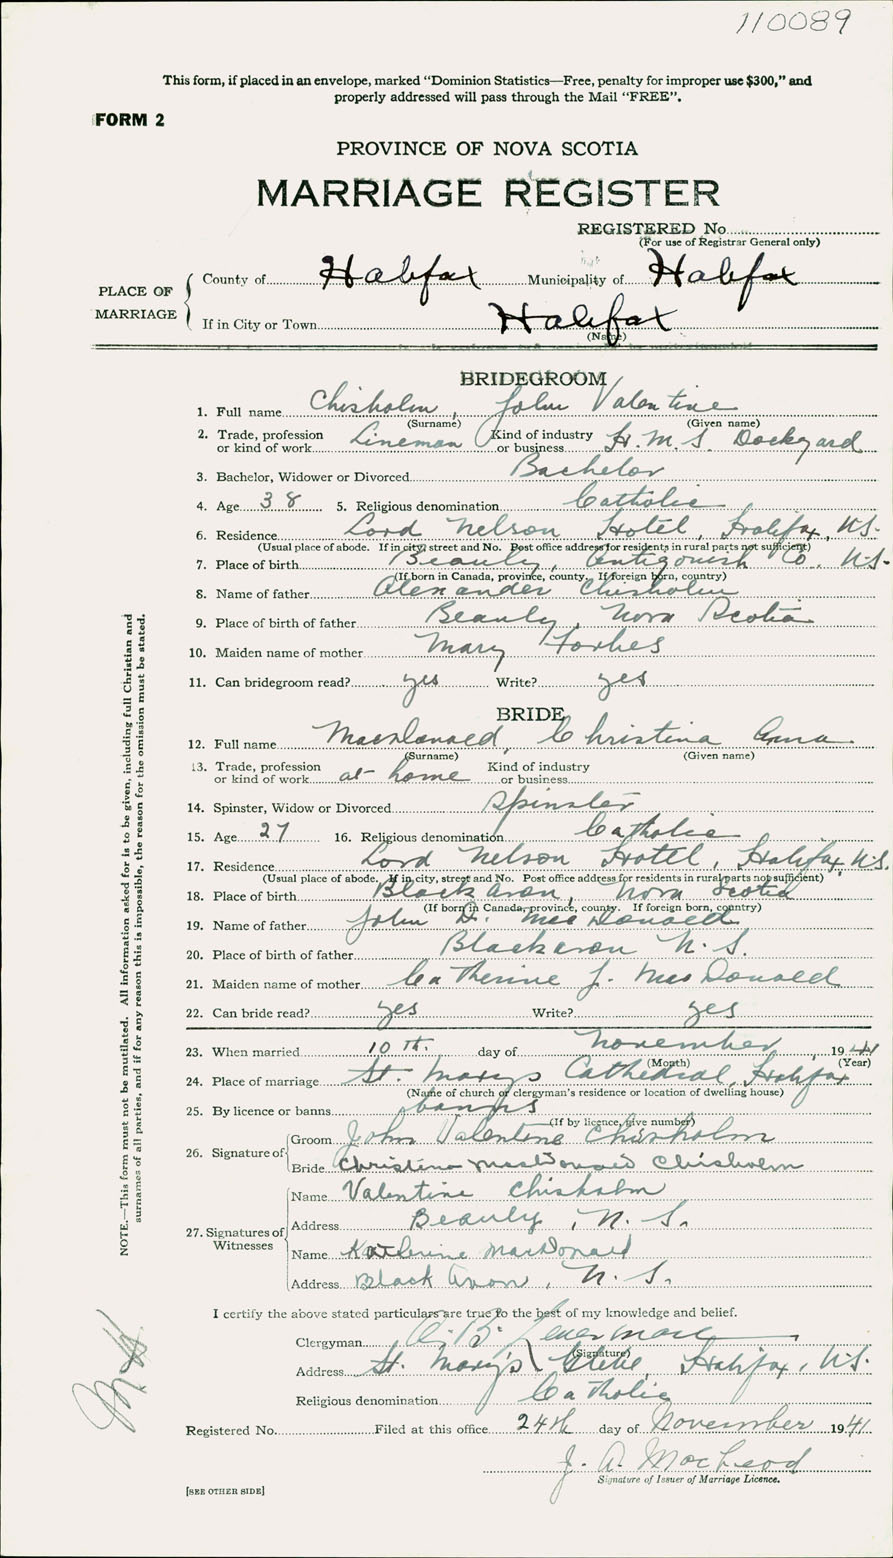 110089
This form, if placed in an envelope, marked “Dominion Statistics—Free, penalty for improper use $300,” and
properly addressed will pass through the Mail “FREE”.
FORM 2
PROVINCE OF NOVA SCOTIA
MARRIAGE REGISTER
REGISTERED No
(For use of Registrar General only)
PLACE OF MARRIAGE
County of Halifax Municipality of Halifax
If in City or Town Halifax
(Name)
BRIDEGROOM
1. Full name Chisholm, John Valentine
(Surname) (Given name)
2. Trade, profession or kind of work Lineman Kind of industry or business H.M.S. Dockyard
3. Bachelor, Widower or Divorced Bachelor
4. Age 38 5. Religious denomination Catholic
6. Residence Lord Nelson Hotel, Halifax, N.S.
(Usual place of abode. If in city, street and No. Post office address for residents in rural parts not sufficient)
7. Place of birth Beauly, Antigonish Co. N.S.
(If born in Canada, province, county. If foreign born, country)
8. Name of father Alexander Chisholm
9. Place of birth of father Beauly, Nova Scotia
10. Maiden name of mother Mary Forbes
11. Can bridegroom read? yes Write? yes
BRIDE
12. Full name MacDonald, Christina Anna
(Surname) (Given name)
13. Trade, profession or kind of work at home Kind of industry or business
14. Spinster, Widow or Divorced Spinster
15. Age 27 16. Religious denomination Catholic
17. Residence Lord Nelson Hotel, Halifax, N.S.
(Usual place of abode. If in city, street and No. Post office address for residents in rural parts not sufficient)
18. Place of birth Black Avon, Nova Scotia
(If born in Canada, province, county. If foreign born, country)
19. Name of father John D. MacDonald
20. Place of birth of father Blackavon N.S.
21. Maiden name of mother Catherine J. MacDonald
22. Can bride read? yes Write? yes
23. When married 10th. day of November, 1941
(Month) (Year)
24. Place of marriage St. Marys Cathedral, Halifax
(Name of church or clergyman's residence or location of dwelling house)
25. By licence or banns banns
(If by licence, give number)
26. Signature of
Groom John Valentine Chisholm
Bride Christina MacDonald Chisholm
27. Signatures of Witnesses
Name Valentine Chisholm
Address Beauly, N.S.
Name Katherine MacDonald
Address Black Avon, N.S.
I certify the above stated particulars are true to the best of my knowledge and belief.
Clergyman
(Signature)
Address St. Mary's Glebe, Halifax, N.S.
Religious denomination Catholic
Registered No. Filed at this office 24th day of November 1941
J. A. MacLeod
Signature of Issuer of Marriage Licence.
[SEE OTHER SIDE]
NOTE.—This form must not be mutilated. All information asked for is to be given, including full Christian and
surnames of all parties, and if for any reason this is impossible, the reason for the omission must be stated.